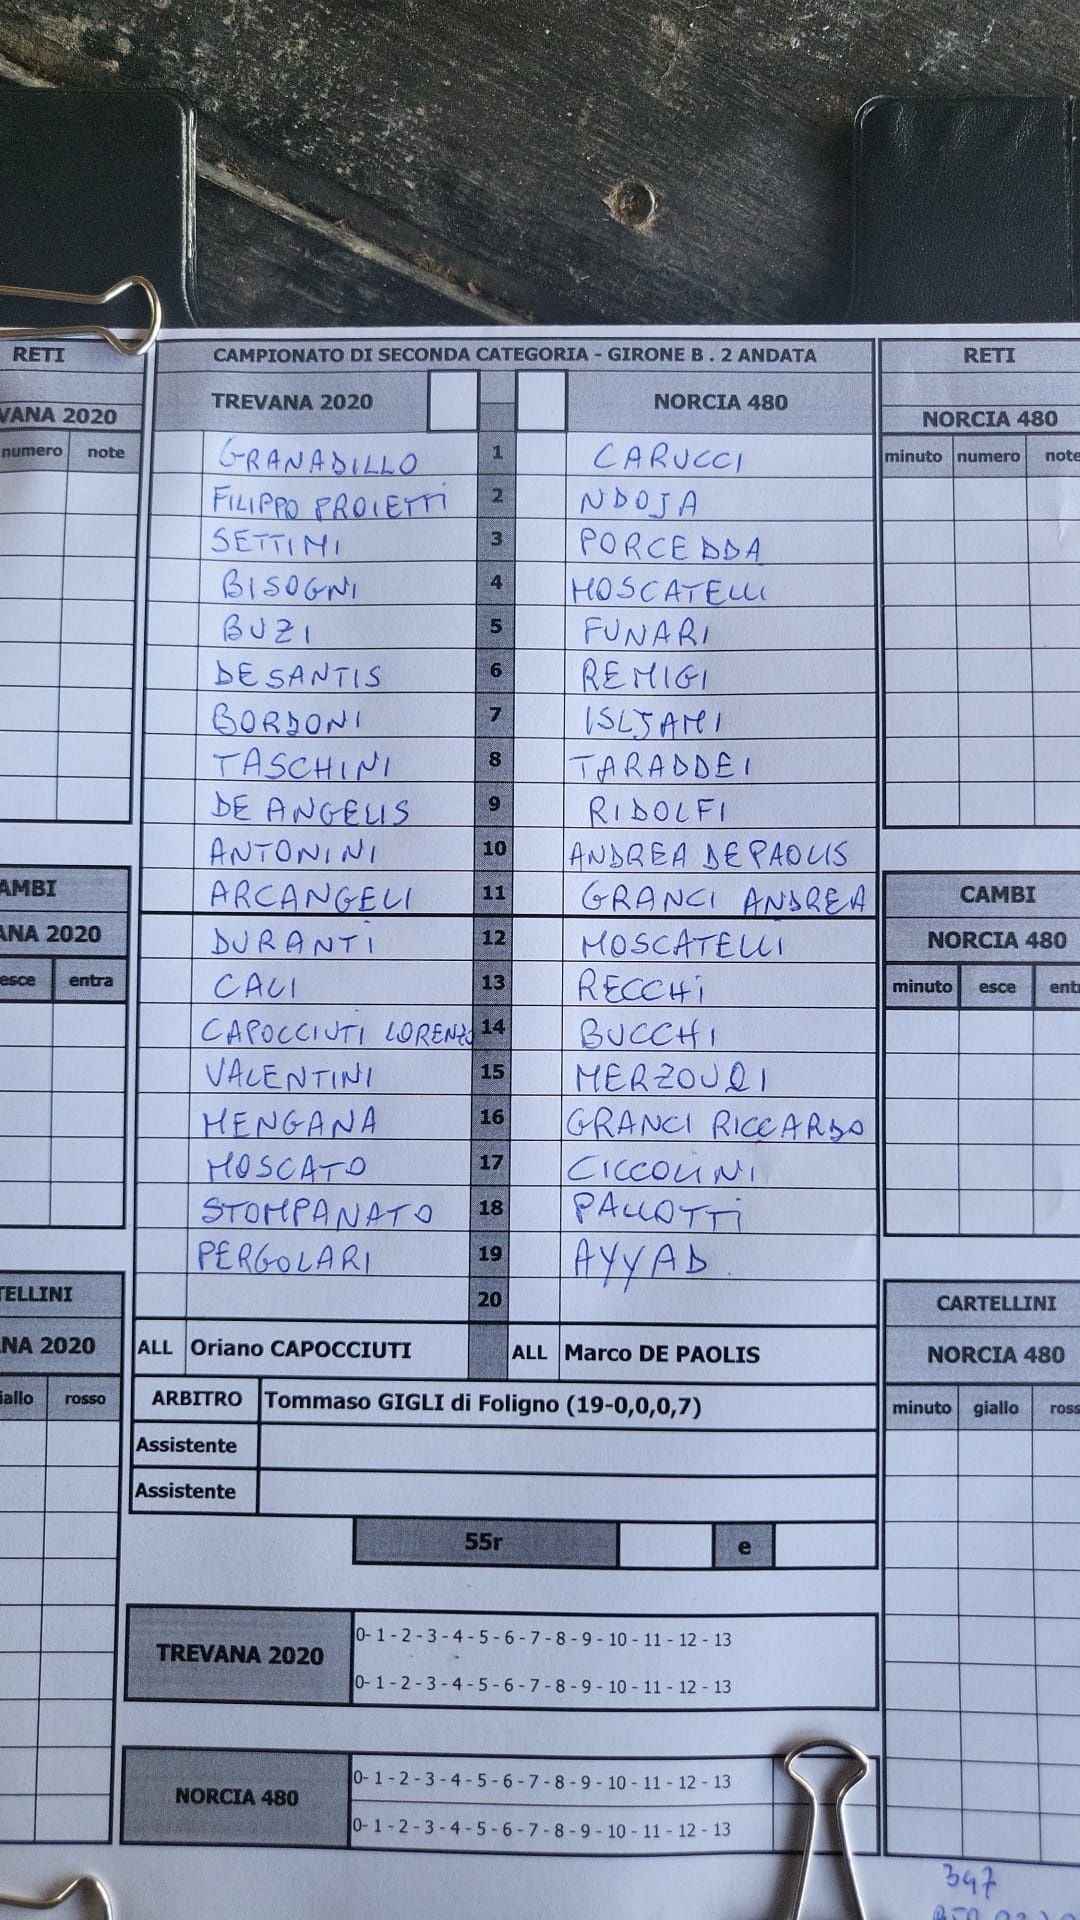 RETI
CAMPIONATO DI SECONDA CATEGORIA - GIRONE B . 2 ANDATA
RETI
VANA 2020
TREVANA 2020
NORCIA 480
NORCIA 480
numero note
minuto numero note
GRANADILLO 1 CARUCCI
FILIPPO PROIETTI 2 NDOJA
SETTIMI 3 PORCEDDA
BISOGNI 4 MOSCATELLI
BUZI 5 FUNARI
DE SANTIS 6 REMIGI
BORDONI 7 ISLJAMI
TASCHINI 8 TARADDEI
DE ANGELIS 9 RIDOLFI
ANTONINI 10 ANDREA DE PAOLIS
ARCANGELI 11 GRANCI ANDREA
DURANTI 12 MOSCATELLI
CALI 13 RECCHI
CAPOCCIUTI LORENZO 14 BUCCHI
VALENTINI 15 MERZOUQI
MENGANA 16 GRANCI RICCARDO
MOSCATO 17 CICCOLINI
STOMPANATO 18 PALLOTTI
PERGOLARI 19 AYYAD
20
AMBI
ANA 2020
esce entra
CAMBI
NORCIA 480
minuto esce ent
ALL Oriano CAPOCCIUTI ALL Marco DE PAOLIS
ARBITRO Tommaso GIGLI di Foligno (19-0,0,0,7)
Assistente
Assistente
TELLINI
NA 2020
iallo rosso
CARTELLINI
NORCIA 480
minuto giallo ross
55r e
TREVANA 2020
0- 1 - 2 - 3 - 4 - 5 - 6 - 7 - 8 - 9 - 10 - 11 - 12 - 13
0- 1 - 2 - 3 - 4 - 5 - 6 - 7 - 8 - 9 - 10 - 11 - 12 - 13
NORCIA 480
0- 1 - 2 - 3 - 4 - 5 - 6 - 7 - 8 - 9 - 10 - 11 - 12 - 13
0- 1 - 2 - 3 - 4 - 5 - 6 - 7 - 8 - 9 - 10 - 11 - 12 - 13
347